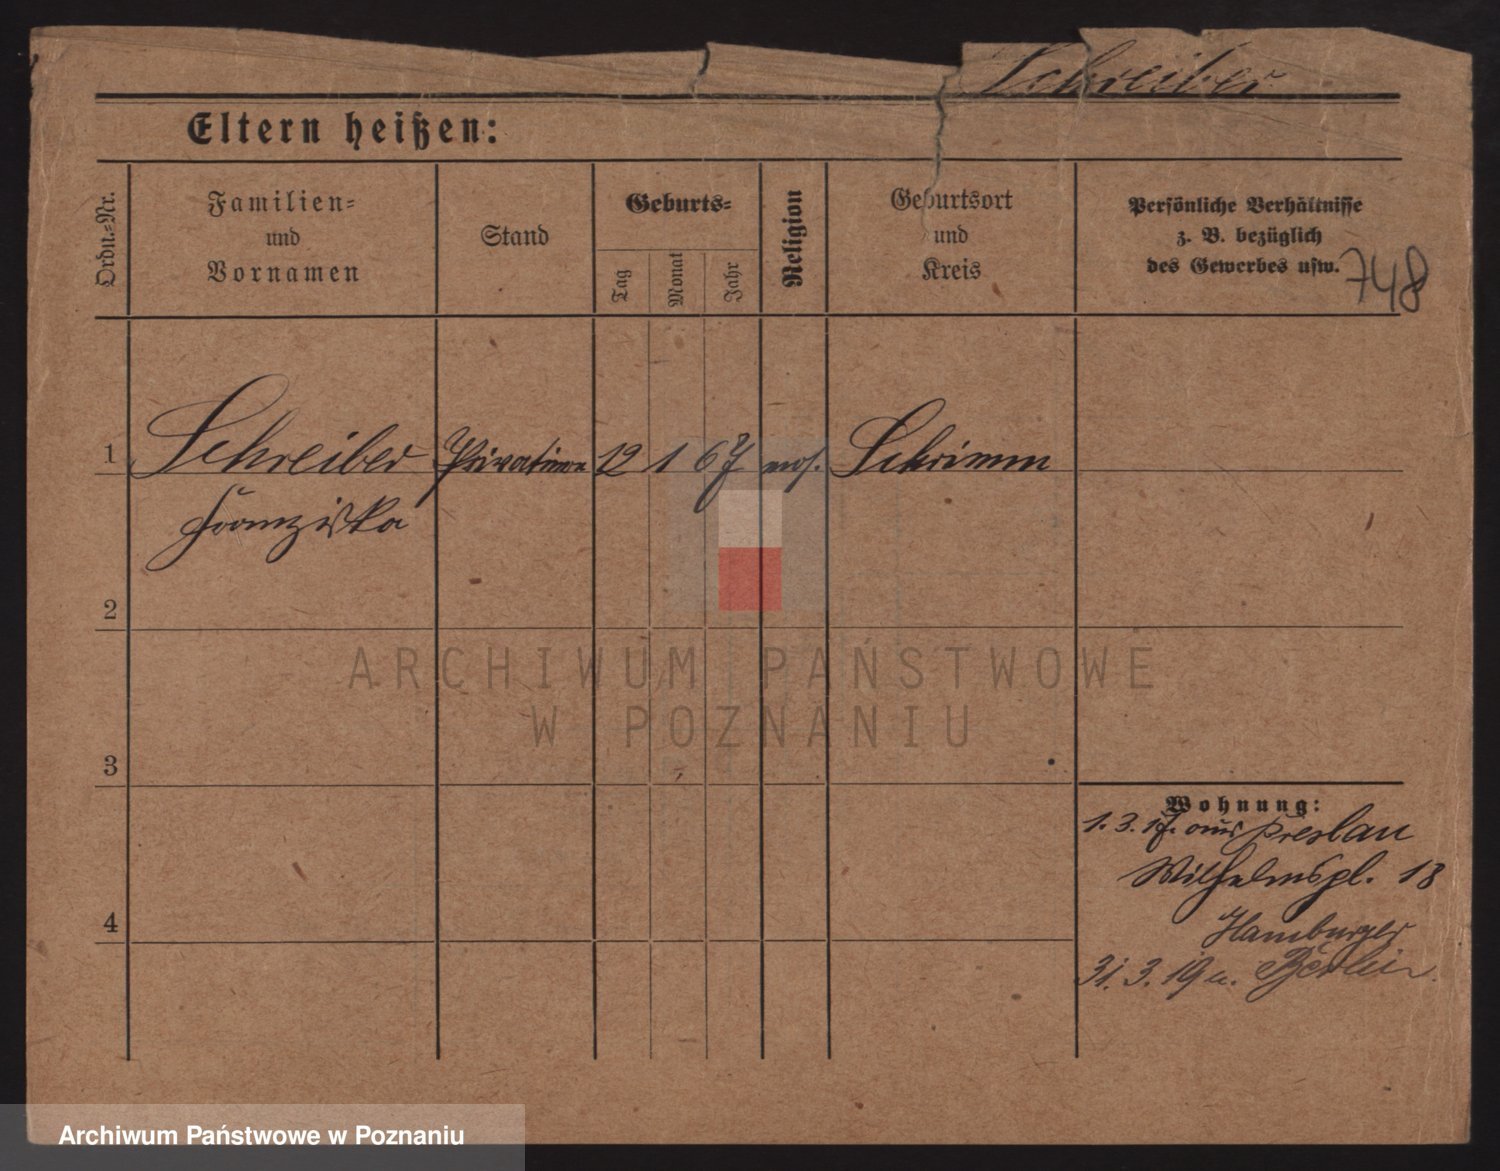 Schreiber
Eltern heißen:
Ordn.-Nr.
Familien-
und
Vornamen
Stand
Geburts-
Tag
Monat
Jahr
Religion
Geburtsort
und
Kreis
Persönliche Verhältnisse
z. B. bezüglich
des Gewerbes usw.
748
1 Schreiber Privatiere 12 1 67 mos. Schrimm
Franziska
2
3
4
Wohnung:
1. 3. 17. aus Breslau
Wilhelmspl. 18
Hamburger
31. 3. 19 n. Berlin.
ARCHIWUM PAŃSTWOWE
W POZNANIU
Archiwum Państwowe w Poznaniu